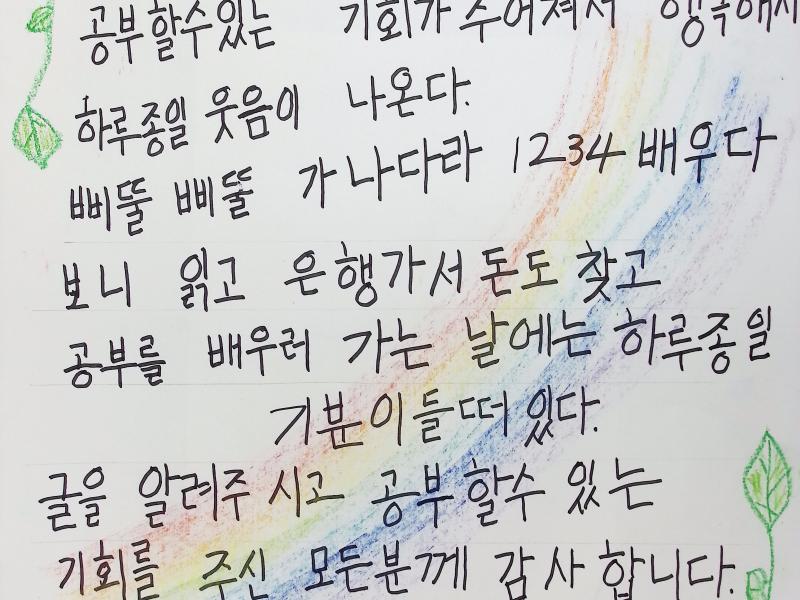 공부할수있는 기회가 주어져서 행복해서
하루종일 웃음이 나온다.
삐뚤 삐뚤 가나다라 1234 배우다
보니 읽고 은행가서 돈도 찾고
공부를 배우러 가는 날에는 하루종일
기분이들떠 있다.
글을 알려주시고 공부할수 있는
기회를 주신 모든분께 감사합니다.